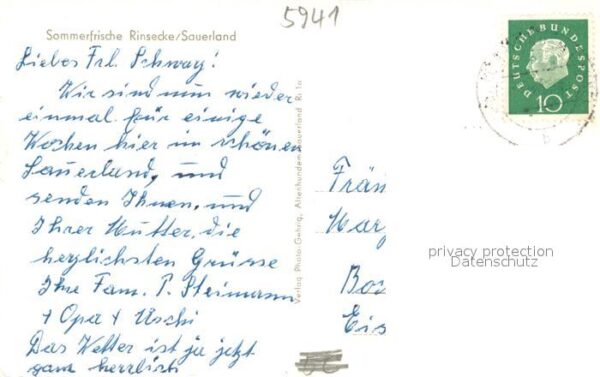 5941
Sommerfrische Rinsecke/Sauerland
Liebes Frl. Schway!
Wir sind nun wieder
einmal für einige
Wochen hier im schönen
Sauerland, und
senden Ihnen, und
Ihrer Mutter, die
herzlichsten Grüsse
Ihre Fam. P. Steimann
+ Opa + Uschi
Das Wetter ist ja jetzt
ganz herrlich
Verlag Photo-Guhrig, Altenhundem-Sauerland Ri 1a
DEUTSCHE BUNDESPOST
10
Frän
Mar
Bo
Eis
privacy protection
Datenschutz